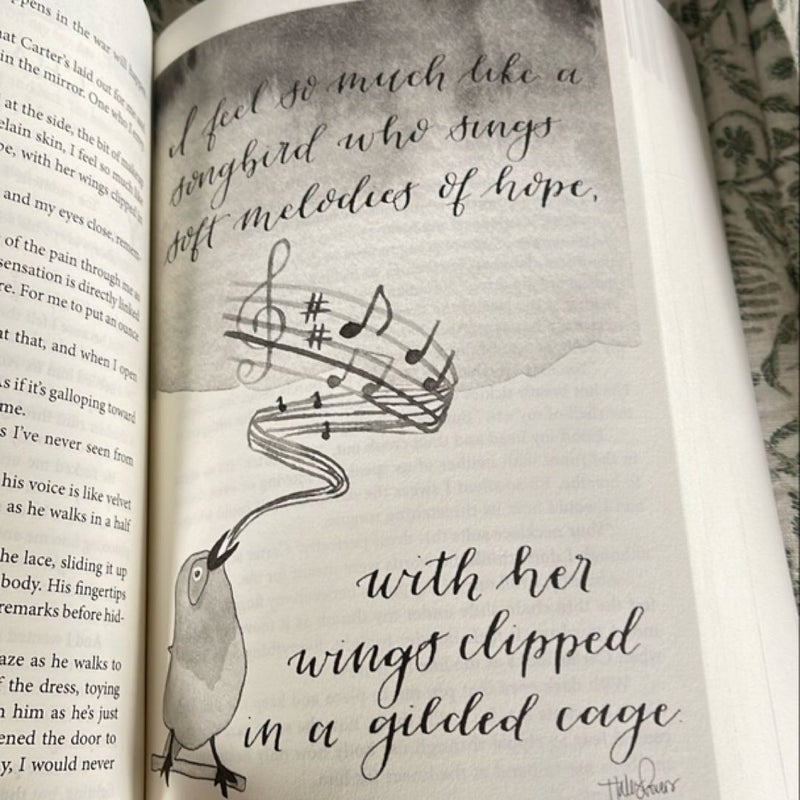 ppens in the war will
at Carter's laid out for me
in the mirror. One who I
at the side, the bit of
elain skin, I feel so much like
pe, with her wings clipped in
and my eyes close, remem-
of the pain through me as
sensation is directly linked
re. For me to put an ounce
at that, and when I open
As if it's galloping toward
me.
s I've never seen from
his voice is like velvet
as he walks in a half
he lace, sliding it up
body. His fingertips
remarks before hid-
aze as he walks to
f the dress, toying
n him as he's just
ened the door to
y, I would never
I feel so much like a
songbird who sings
soft melodies of hope,
with her
wings clipped
in a gilded cage.